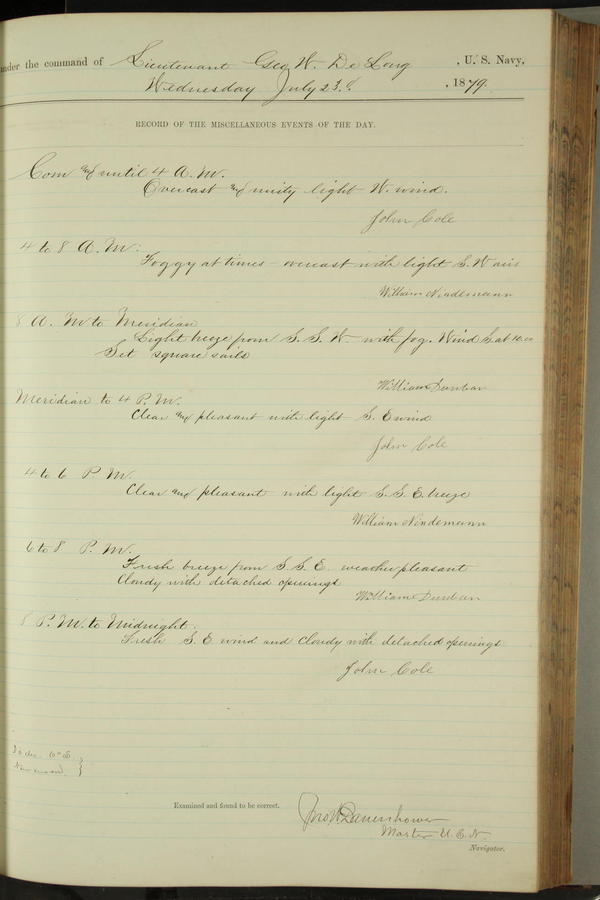 under the command of Lieutenant Geo. W. De Long, U. S. Navy,
Wednesday July 23d, 1879.
RECORD OF THE MISCELLANEOUS EVENTS OF THE DAY.
Com and until 4 A. M.
Overcast and misty light W. wind.
John Cole
4 to 8 A. M.
Foggy at times - overcast with light S. W airs
William Nindemann
8 A. M to Meridian
Light breeze from S. S. W - with fog. Wind S. at 10.00
Set square sails
William Dunbar
Meridian to 4 P. M.
Clear and pleasant with light S. E wind
John Cole
4 to 6 P. M.
Clear and pleasant with light S. S. E. breeze
William Nindemann
6 to 8 P. M.
Fresh breeze from S. S. E. weather pleasant
Cloudy with detached openings
William Dunbar
8 P. M. to Midnight.
Fresh S. E wind and cloudy with detached openings
John Cole
Examined and found to be correct.
Jno W Danenhower
Master U. S. N.
Navigator.